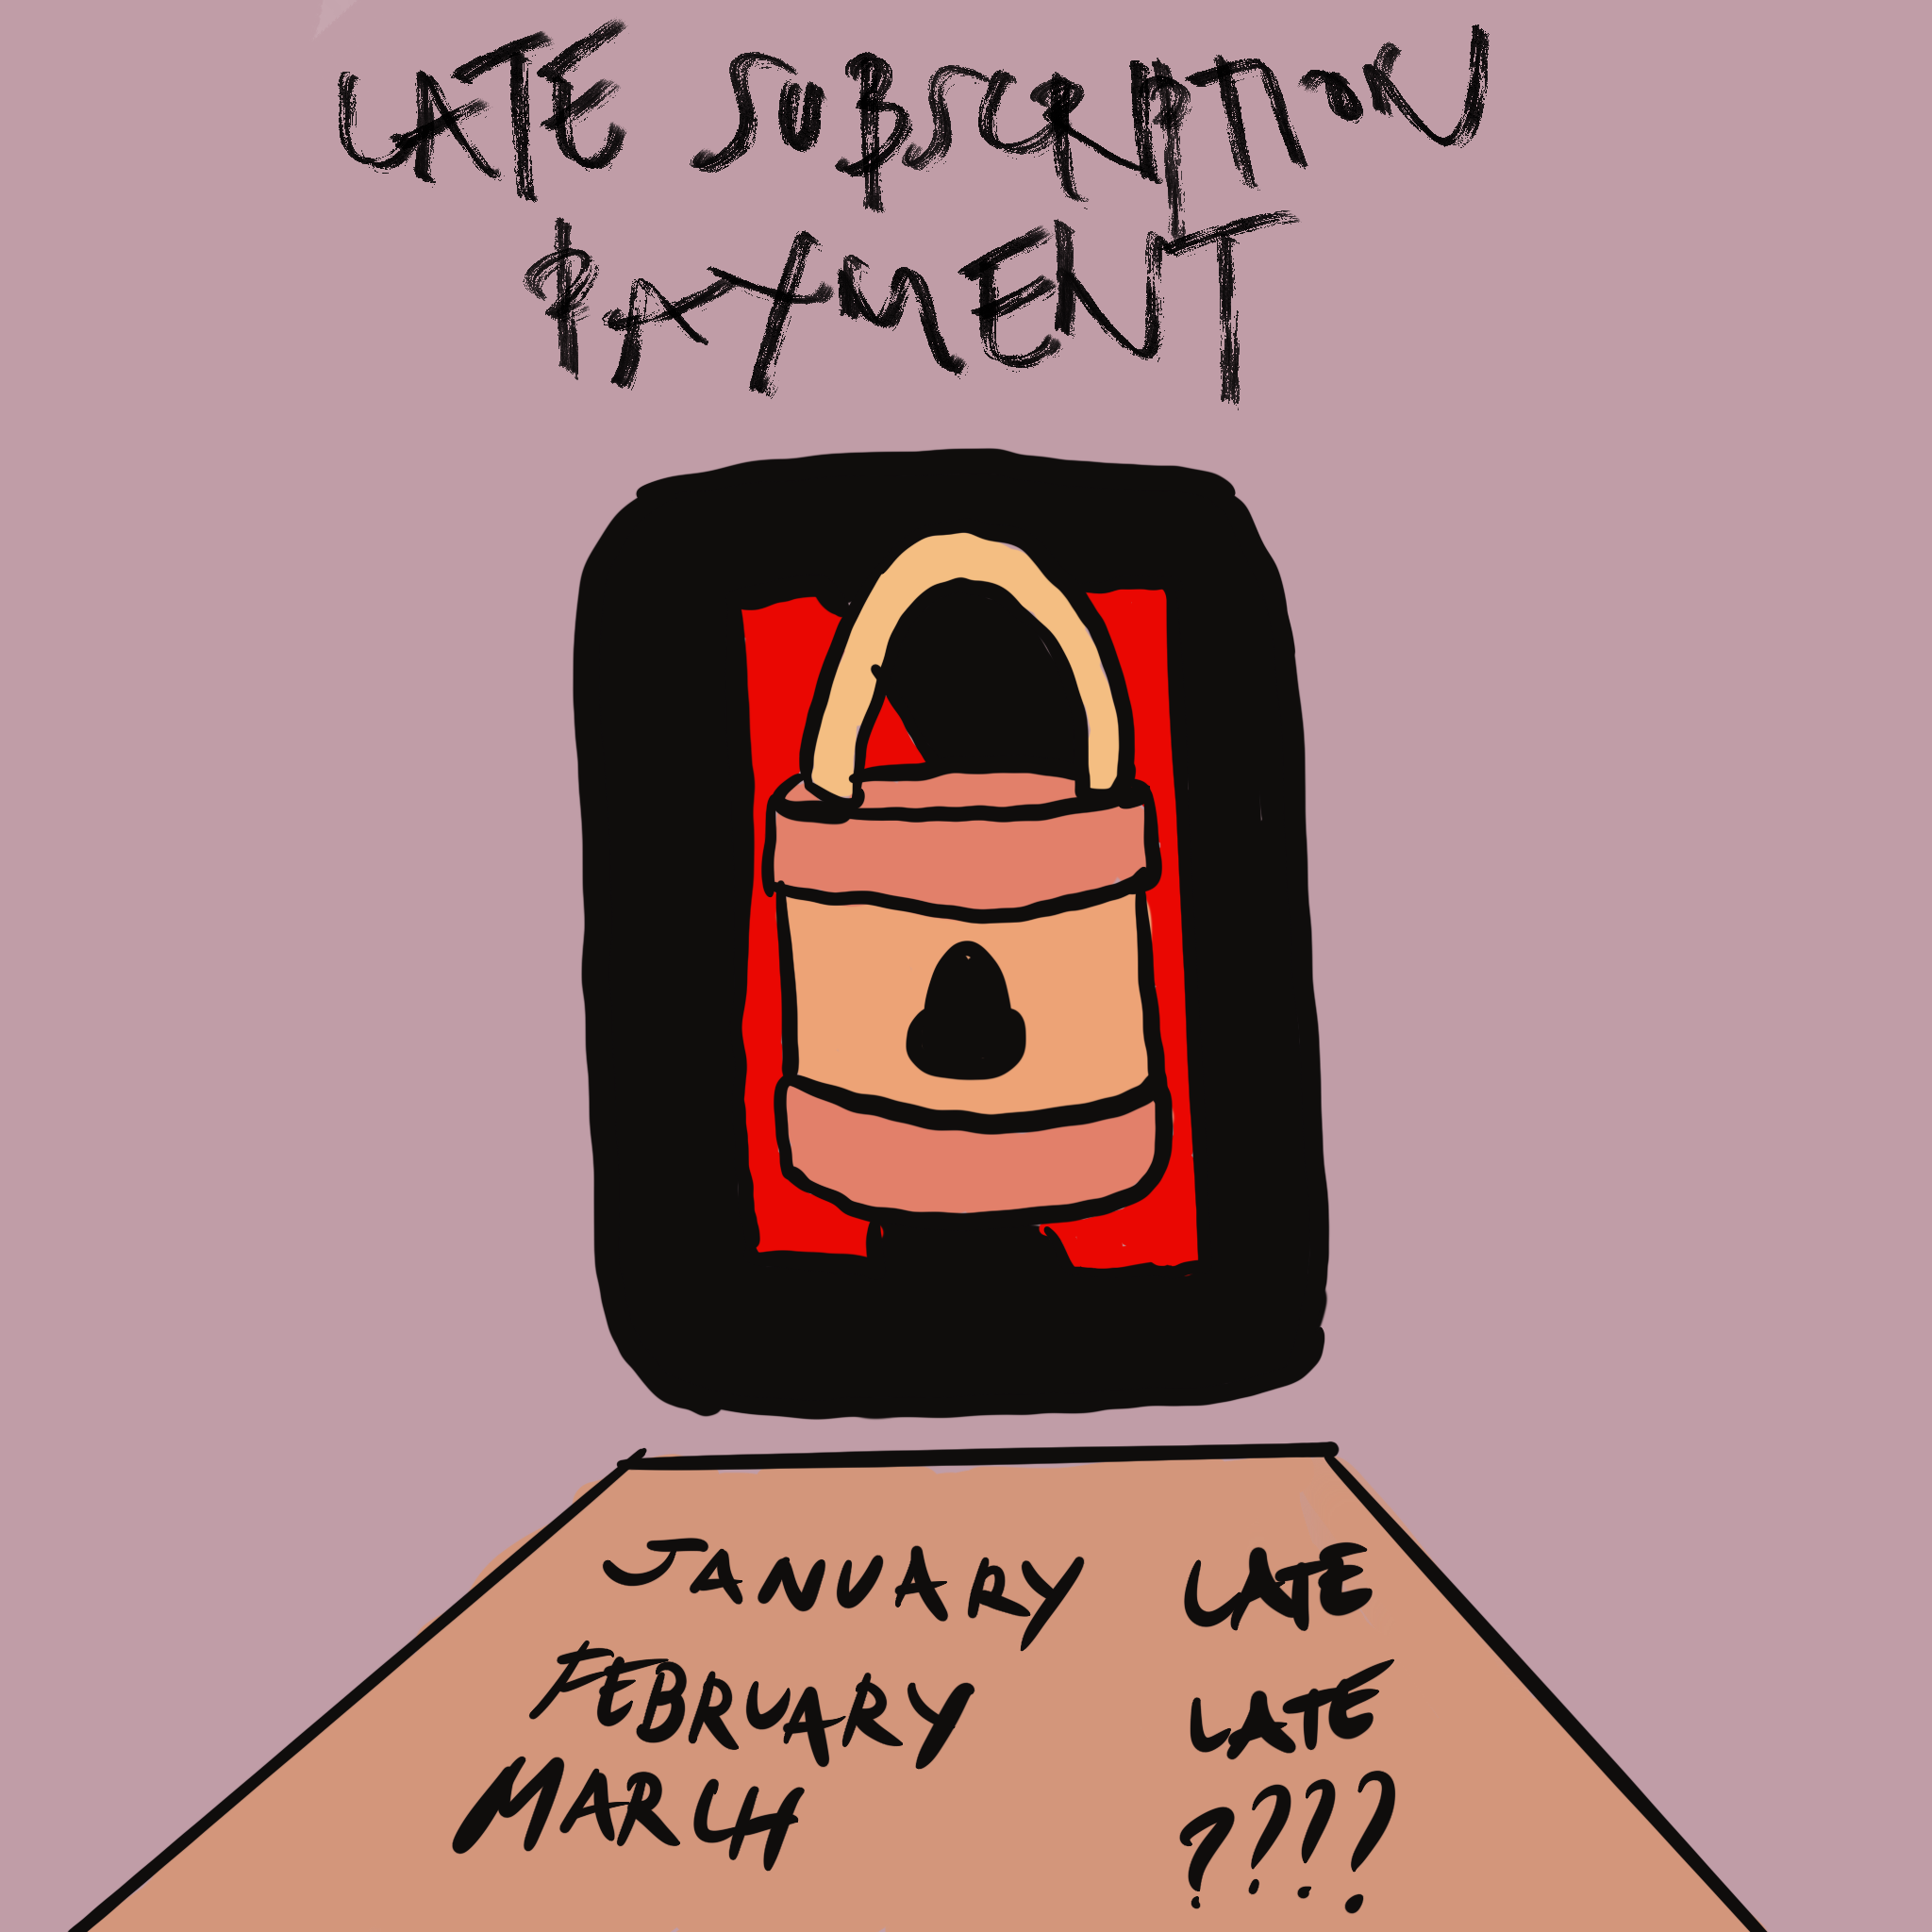 LATE SUBSCRIPTION
PAYMENT
JANUARY LATE
FEBRUARY LATE
MARCH ????